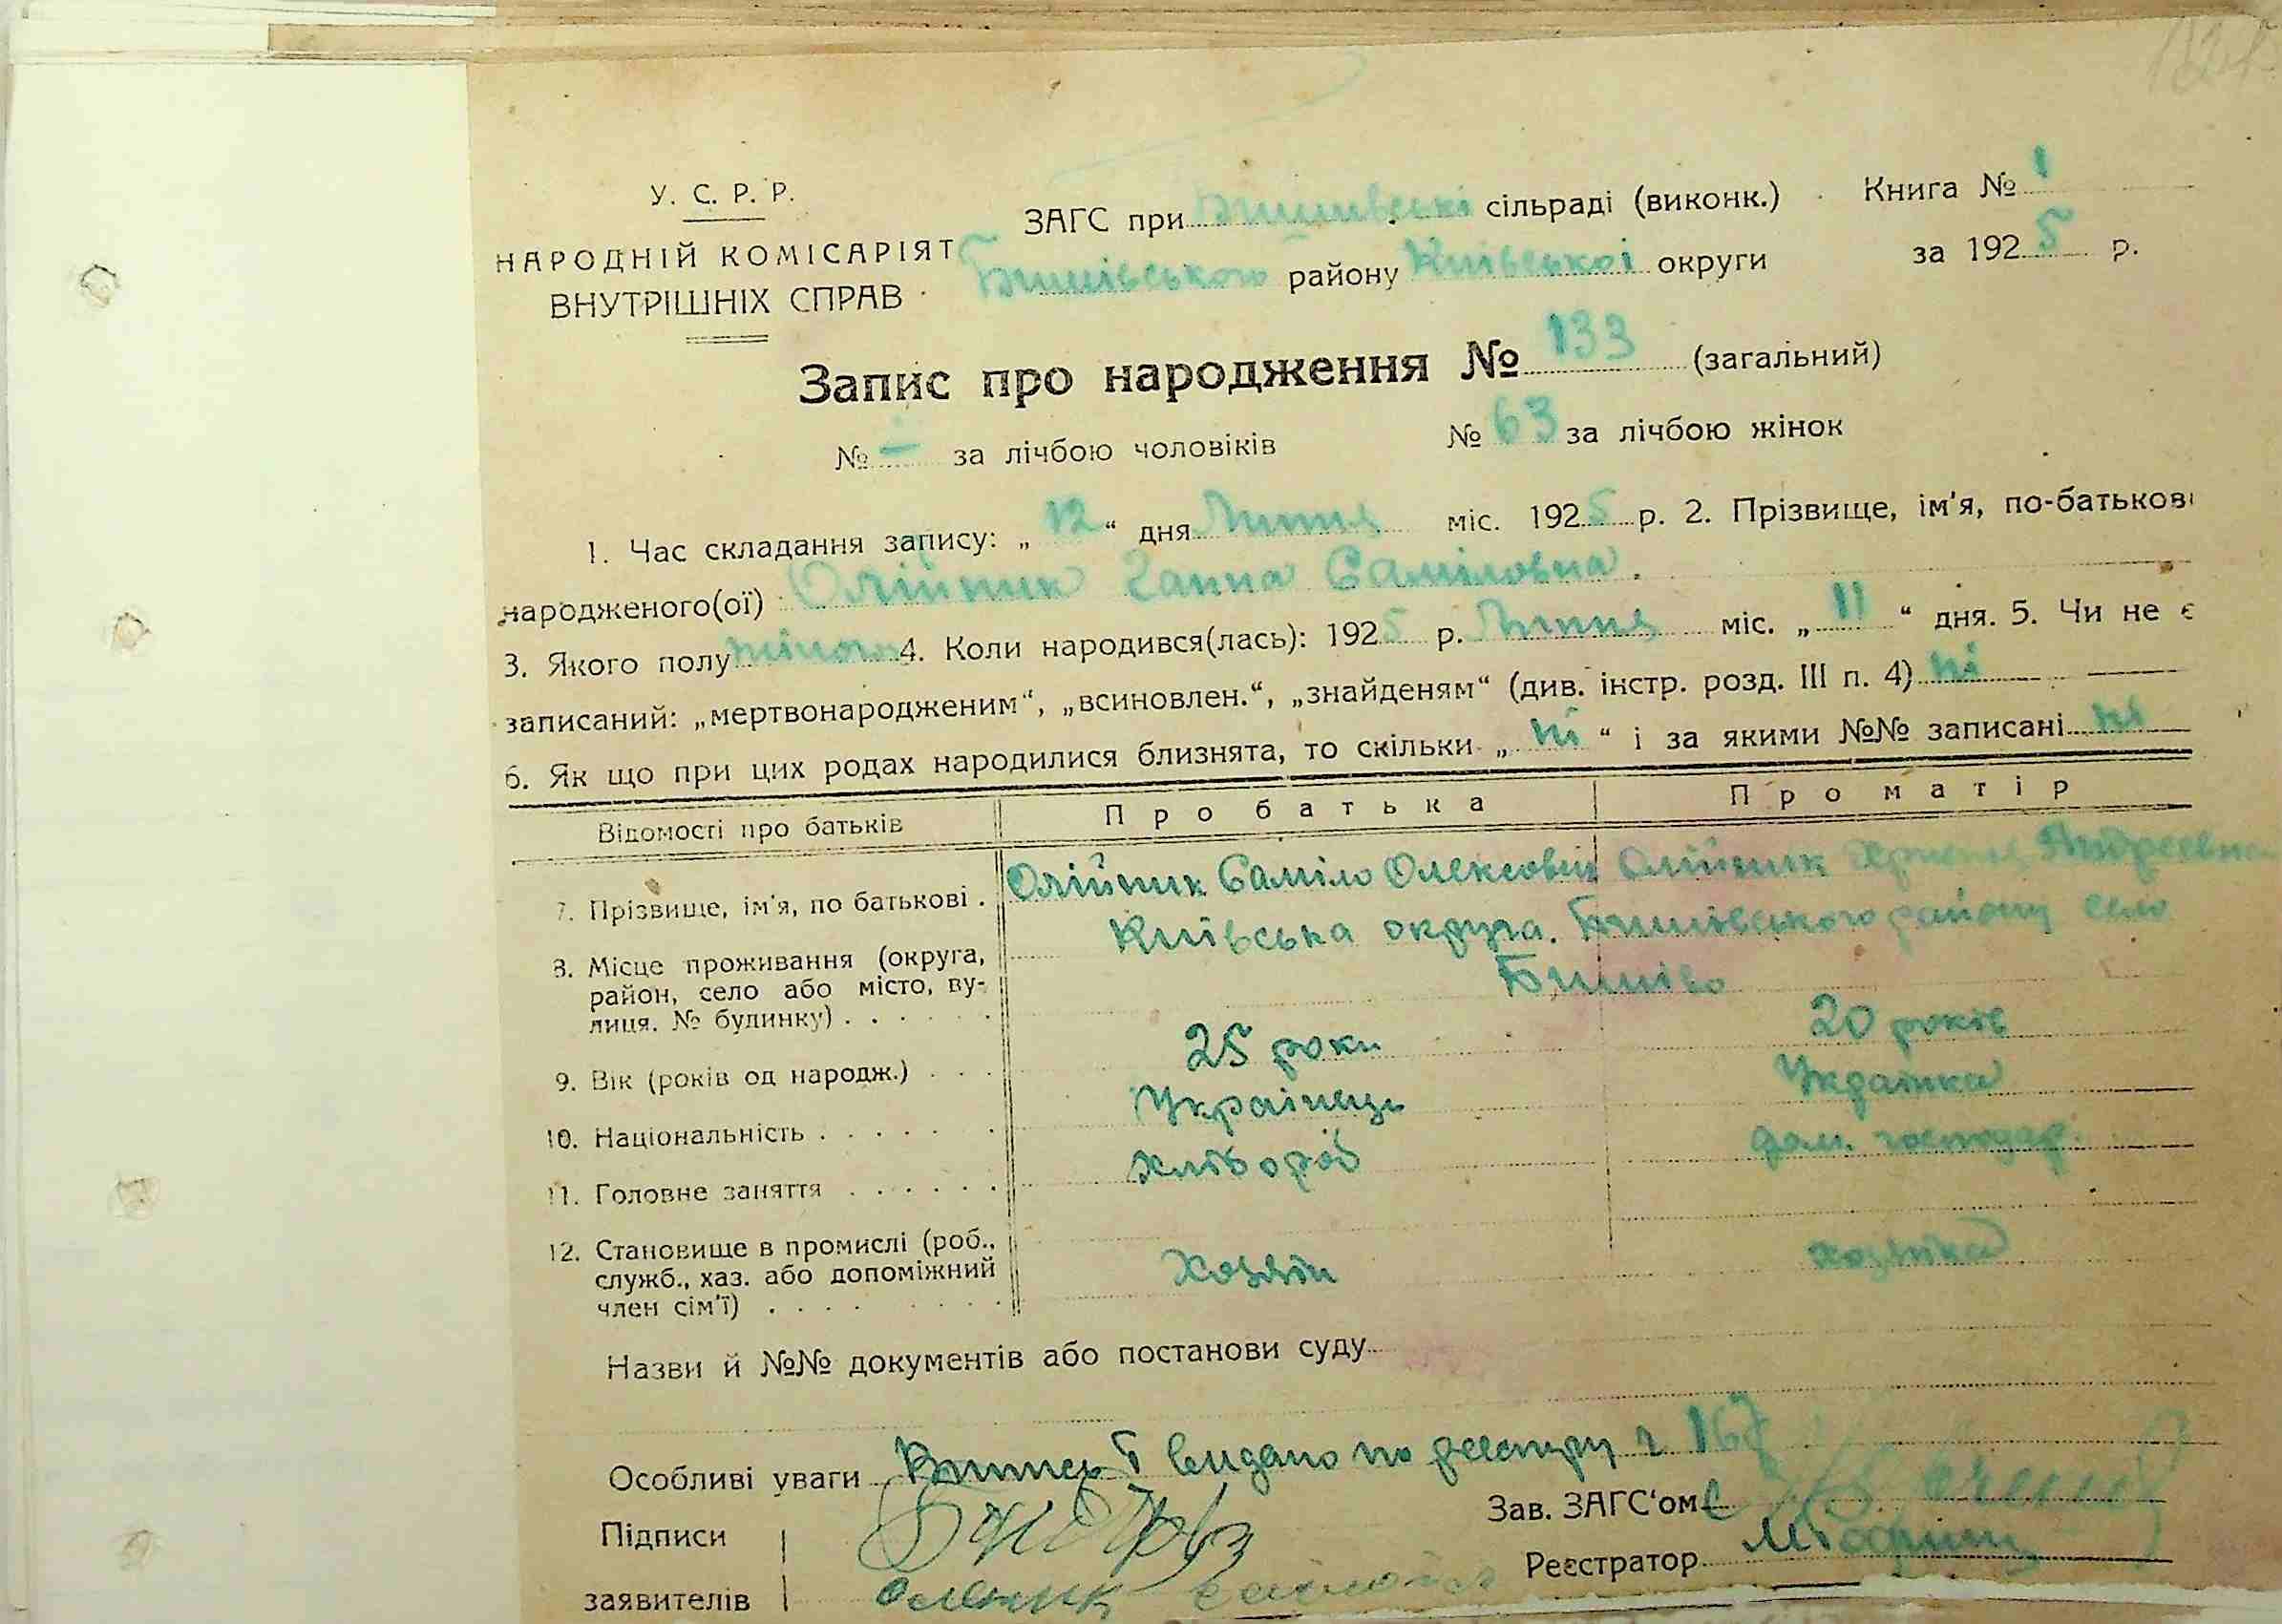 У. С. Р. Р.
НАРОДНІЙ КОМІСАРІЯТ
ВНУТРІШНІХ СПРАВ
ЗАГС при Бишівські сільраді (виконк.) Книга № 1
Бишівського району Київської округи за 1925 р.
Запис про народження № 133 (загальний)
№ — за лічбою чоловіків № 63 за лічбою жінок
1. Час складання запису: „12“ дня Липня міс. 1925 р. 2. Прізвище, ім'я, по-батькові
народженого(ої) Олійник Ганна Саміловна.
3. Якого полу жіночи 4. Коли народився(лась): 1925 р. Липня міс. „11“ дня. 5. Чи не є
записаний: „мертвонародженим“, „всиновлен.“, „знайденям“ (див. інстр. розд. III п. 4) ні
6. Як що при цих родах народилися близнята, то скільки „ні“ і за якими №№ записані ні
Відомості про батьків Про батька Про матір
7. Прізвище, ім'я, по батькові . Олійник Саміло Олексович Олійник Андреевна
8. Місце проживання (округа, район, село або місто, вулиця. № будинку) . . . . . .
Київська округа. Бишівського району село
Бишів
9. Вік (років од народж.) . . . 25 роки 20 років
10. Національність . . . . . . Українець Українка
11. Головне заняття . . . . . . хлібороб дом. господар.
12. Становище в промислі (роб., служб., хаз. або допоміжний член сім'ї) . . . . Хозяін хозяйка
Назви й №№ документів або постанови суду
Особливі уваги Випись видано по реестру г 167
Підписи
Зав. ЗАГС'ом
заявителів Олійник
Реєстратор